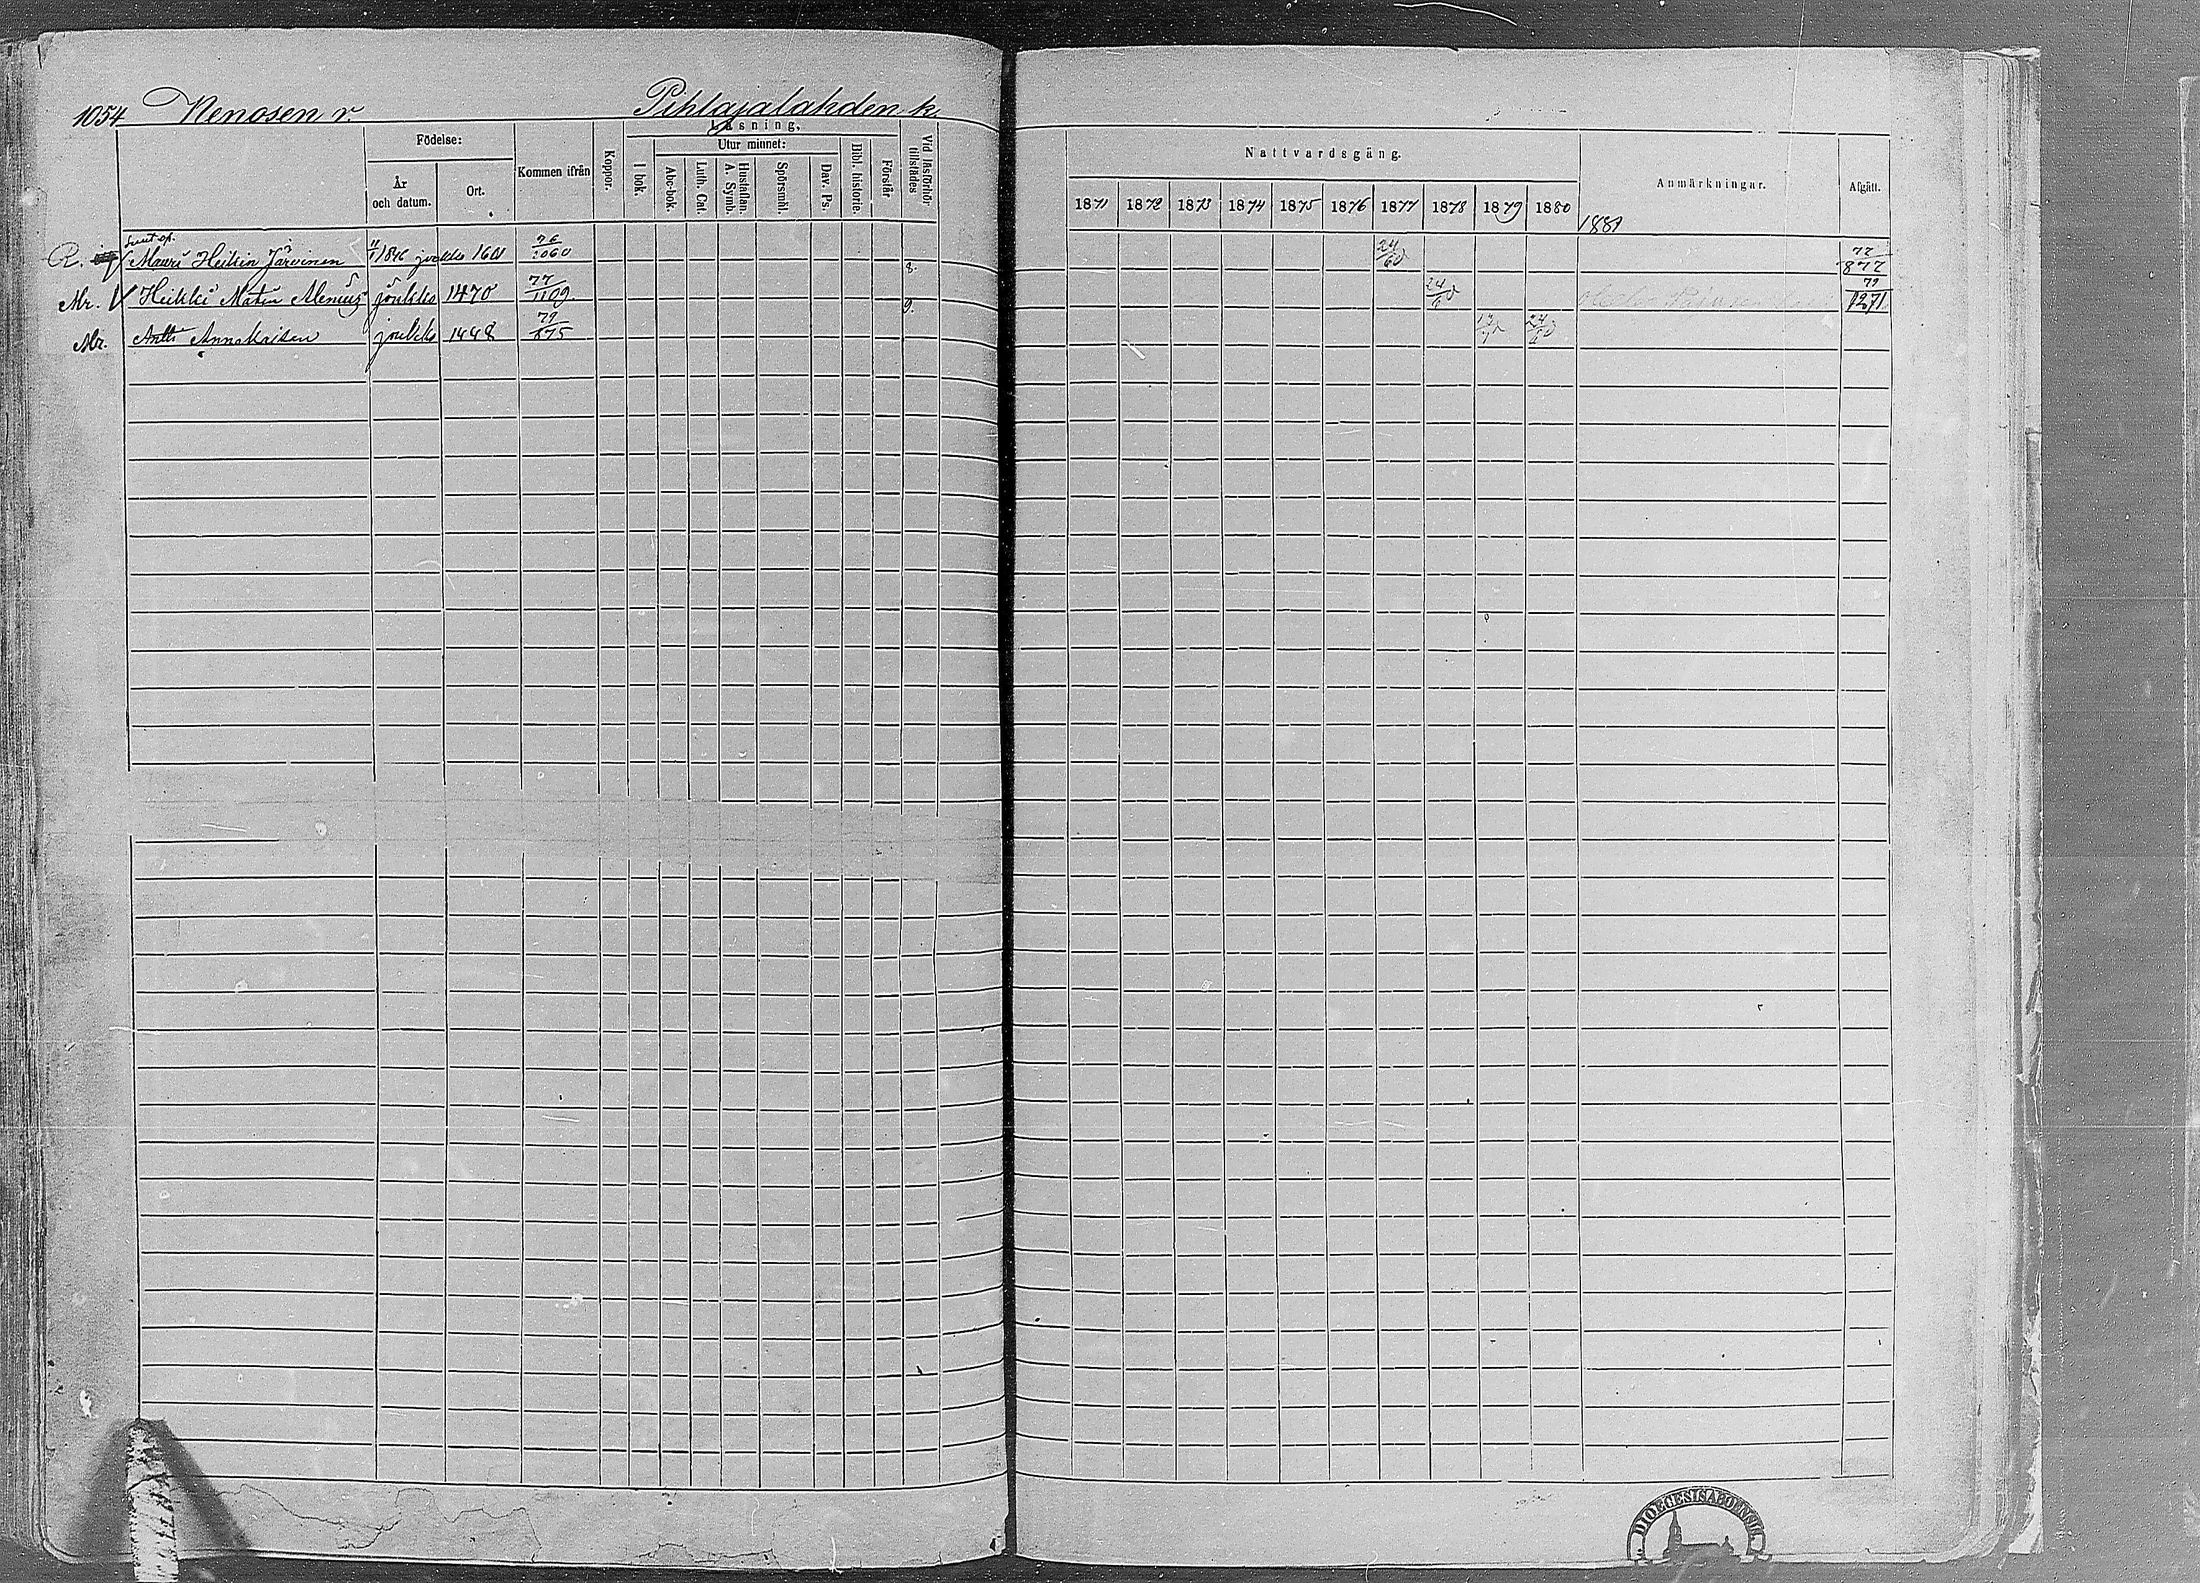 1054 Nenosen r. Pihlajalahden k.
Födelse:
År och datum.
Ort.
Kommen ifrån
Koppor.
Läsning,
I bok.
Utur minnet:
Abc-bok.
Luth. Cat.
Hustaflan. A. Symb.
Spörsmål.
Dav. Ps.
Bibl. historie.
Förstår
Vid läsförhör tillstädes
Nattvardsgång.
1871 1872 1873 1874 1875 1876 1877 1878 1879 1880
Anmärkningar.
1881
Afgått.
R. Mauri Heikin Järvinen 1846 1601 76/1060 8. 24/6 77/877
Mr. Heikki Matin Alenius joukko 1470 77/1109 9. 24/6 79/1271
Mr. Antti Annakaisan joukko 1448 79/875 24/6
DIOECESIS ABOENSIS